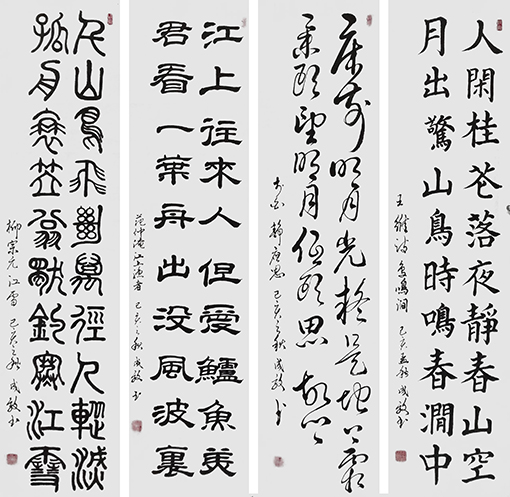 人閑桂花落夜靜春山空
月出驚山鳥時鳴春澗中
王維詩鳥鳴澗 己亥孟秋成敏書
床前明月光疑是地上霜
舉頭望明月低頭思故鄉
李白靜夜思 己亥之秋成敏書
江上往來人但愛鱸魚美
君看一葉舟出没風波裏
范仲淹江上漁者 己亥之秋成敏書
千山鳥飛絕萬徑人蹤滅
孤舟蓑笠翁獨釣寒江雪
柳宗元江雪 己亥之秋成敏書